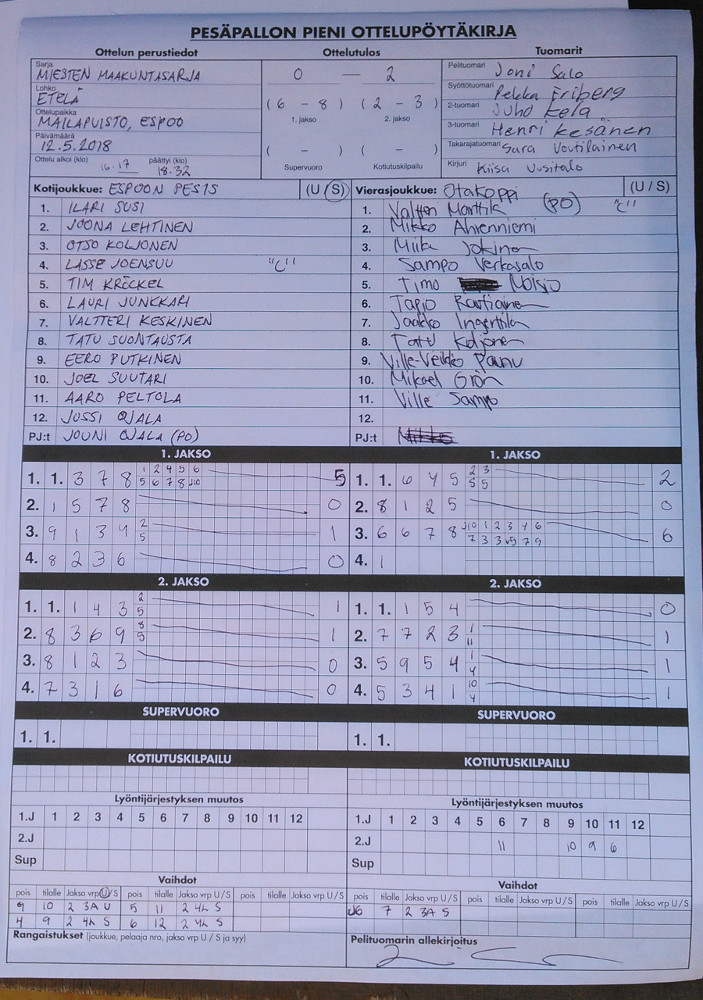 PESÄPALLON PIENI OTTELUPÖYTÄKIRJA
Ottelun perustiedot Ottelutulos Tuomarit
Sarja MIESTEN MAAKUNTASARJA 0 — 2 Pelituomari Joni Salo
Lohko ETELÄ (6 - 8) (2 - 3) Syöttötuomari Pekka Friberg
Ottelupaikka MAILAPUISTO, ESPOO 1. jakso 2. jakso 2-tuomari Juho Kela
Päivämäärä 12.5.2018 ( - ) ( - ) 3-tuomari Henri Kesänen
Takarajatuomari Sara Voutilainen
Ottelu alkoi (klo) 16.17 päättyi (klo) 18.32 Supervuoro Kotiutuskilpailu Kirjuri Kiisa Uusitalo
Kotijoukkue: ESPOON PESIS (U/S) Vierasjoukkue: Otakoppi (U/S)
1. ILARI SUSI 1. Valtteri Marttila (PO) "C"
2. JOONA LEHTINEN 2. Mikko Ahrenniemi
3. OTSO KOLJONEN 3. Miika Jokinen
4. LASSE JOENSUU "C" 4. Sampo Verkasalo
5. TIM KRÖCKEL 5. Timo Moisio
6. LAURI JUNKKARI 6. Tapio Rautiainen
7. VALTTERI KESKINEN 7. Jaakko Ingerttila
8. TATU SUONTAUSTA 8. Tatu Koljonen
9. EERO PUTKINEN 9. Ville-Veikko Raunu
10. JOEL SUUTARI 10. Mikael Grön
11. AARO PELTOLA 11. Ville Sampo
12. JUSSI OJALA 12.
PJ:t JOUNI OJALA (PO) PJ:t
1. JAKSO 1. JAKSO
1. 1. 3 7 8 1 2 4 5 6 5 1. 1. 6 4 5 2 3 2
5 6 7 8 J10 5 5
2. 1 5 7 8 0 2. 8 1 2 5 0
3. 9 1 3 4 2 1 3. 6 6 7 8 J10 1 2 3 4 6 6
5 7 3 3 J5 7 9
4. 8 2 3 6 0 4. 1
2. JAKSO 2. JAKSO
1. 1. 1 4 3 2 1 1. 1. 1 5 4 0
5
2. 8 3 6 9 8 1 2. 7 7 2 3 1 1
5 11
3. 8 1 2 3 0 3. 5 9 5 4 1 1
4
4. 7 3 1 6 0 4. 5 3 4 1 10 1
4
SUPERVUORO SUPERVUORO
1. 1. 1. 1.
KOTIUTUSKILPAILU KOTIUTUSKILPAILU
Lyöntijärjestyksen muutos Lyöntijärjestyksen muutos
1.J 1 2 3 4 5 6 7 8 9 10 11 12 1.J 1 2 3 4 5 6 7 8 9 10 11 12
2.J 2.J 11 10 9 6
Sup Sup
Vaihdot Vaihdot
pois tilalle Jakso vrp U/S pois tilalle Jakso vrp U/S pois tilalle Jakso vrp U/S pois tilalle Jakso vrp U/S pois tilalle Jakso vrp U/S pois tilalle Jakso vrp U/S
9 10 2 3A U 5 11 2 4L S J6 7 2 3A S
4 9 2 4L S 6 12 2 4L S
Rangaistukset (joukkue, pelaaja nro, jakso vrp U / S ja syy) Pelituomarin allekirjoitus